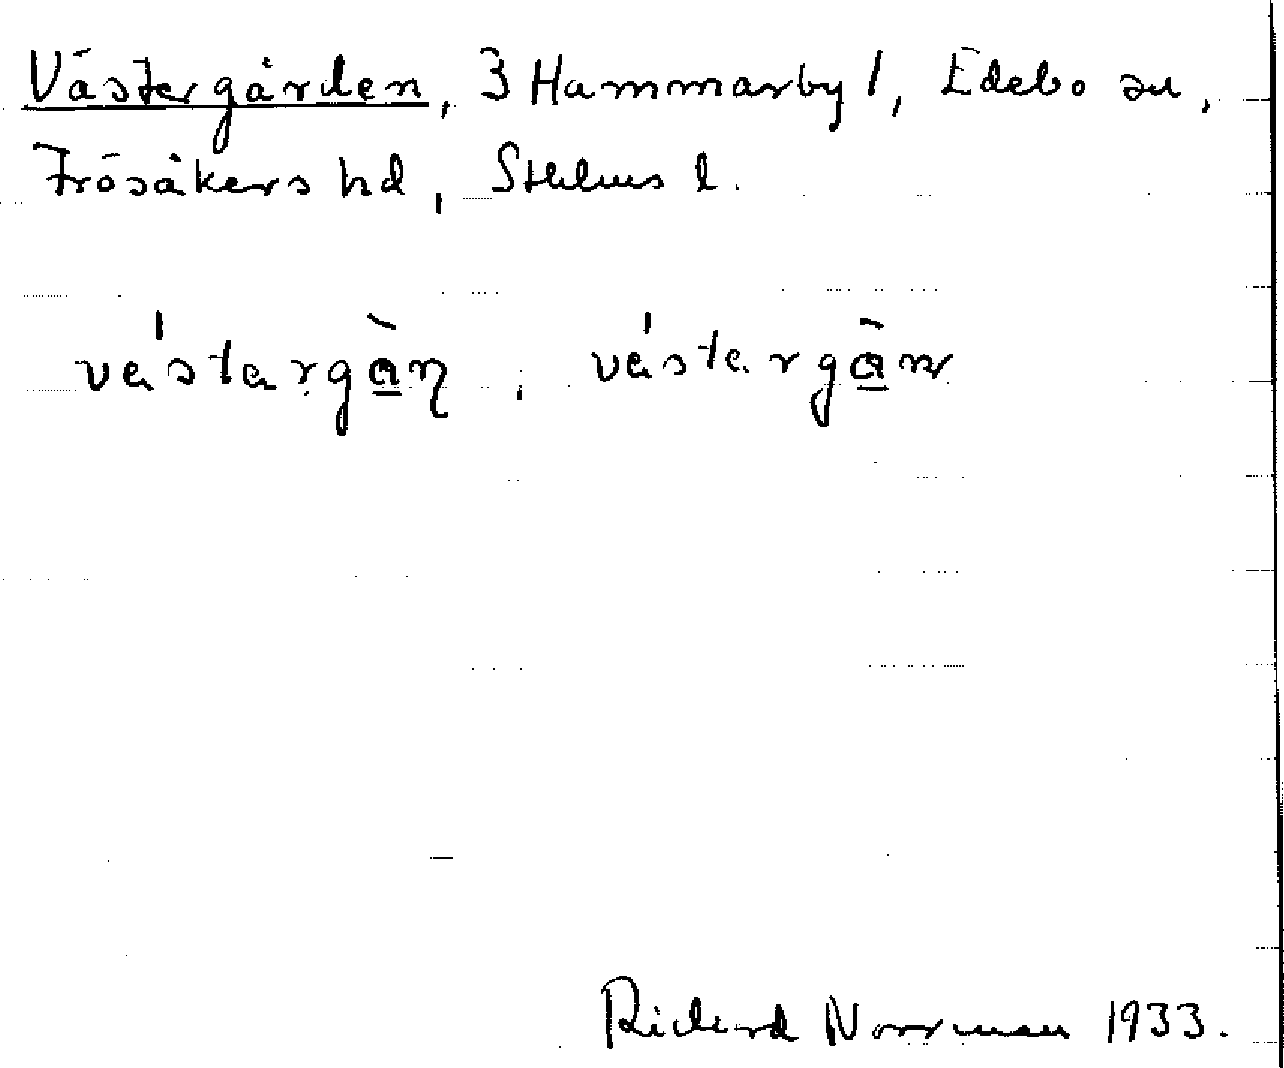 Västergården, 3 Hammarby 1, Edebo sn,
Frösåkers hd, Sthlms l.
vɛ́stargå̀ṇ, vɛ́stargå̀n
Richard Norrman 1933.